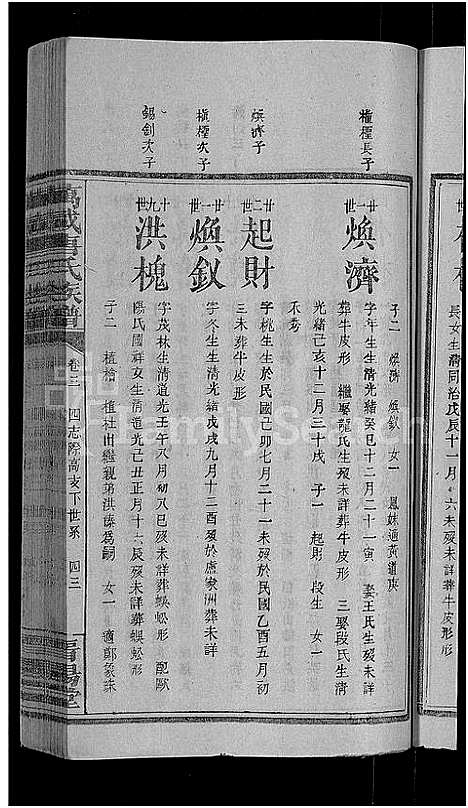 長女生清同治戊辰十一月
六未歿未詳葬牛皮形
權樫長子
子二 煥濟 煥釵 女一
廿一世
煥濟
字年生生清光緒癸巳十二月二十一寅
娶王氏生歿未詳
葬牛皮形 繼娶龍氏生歿未詳葬牛皮形 三娶段氏生清
光緒己亥十二月三十戌 子一 起財 段生 女一
不秀
煥濟子
廿二世
起財
字桃生生於民國己卯七月二十一未歿於民國乙酉五月初
三未葬牛皮形
權樫次子
廿一世
煥釵
字冬生生清光緒戊戌九月十三酉歿於盧家洲葬未詳
錫劍次子
十九世
洪槐
字茂林生清道光壬午八月初八巳歿未詳葬蜈蚣形 配歐
陽氏國祥女生清道光己丑正月十六辰歿未詳葬蜈蚣形
子二 植檜 植杜出繼親弟洪藻為嗣 女一 適鄭象
萬載 氏族譜
卷三
四志 高 下世系
四三
堂
FamilySearch